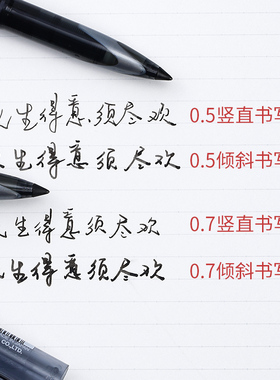 生得意须尽欢 0.5竖直书写
生得意须尽欢 0.5倾斜书写
生得意须尽欢 0.7竖直书写
生得意须尽欢 0.7倾斜书写
CO.,LTD.